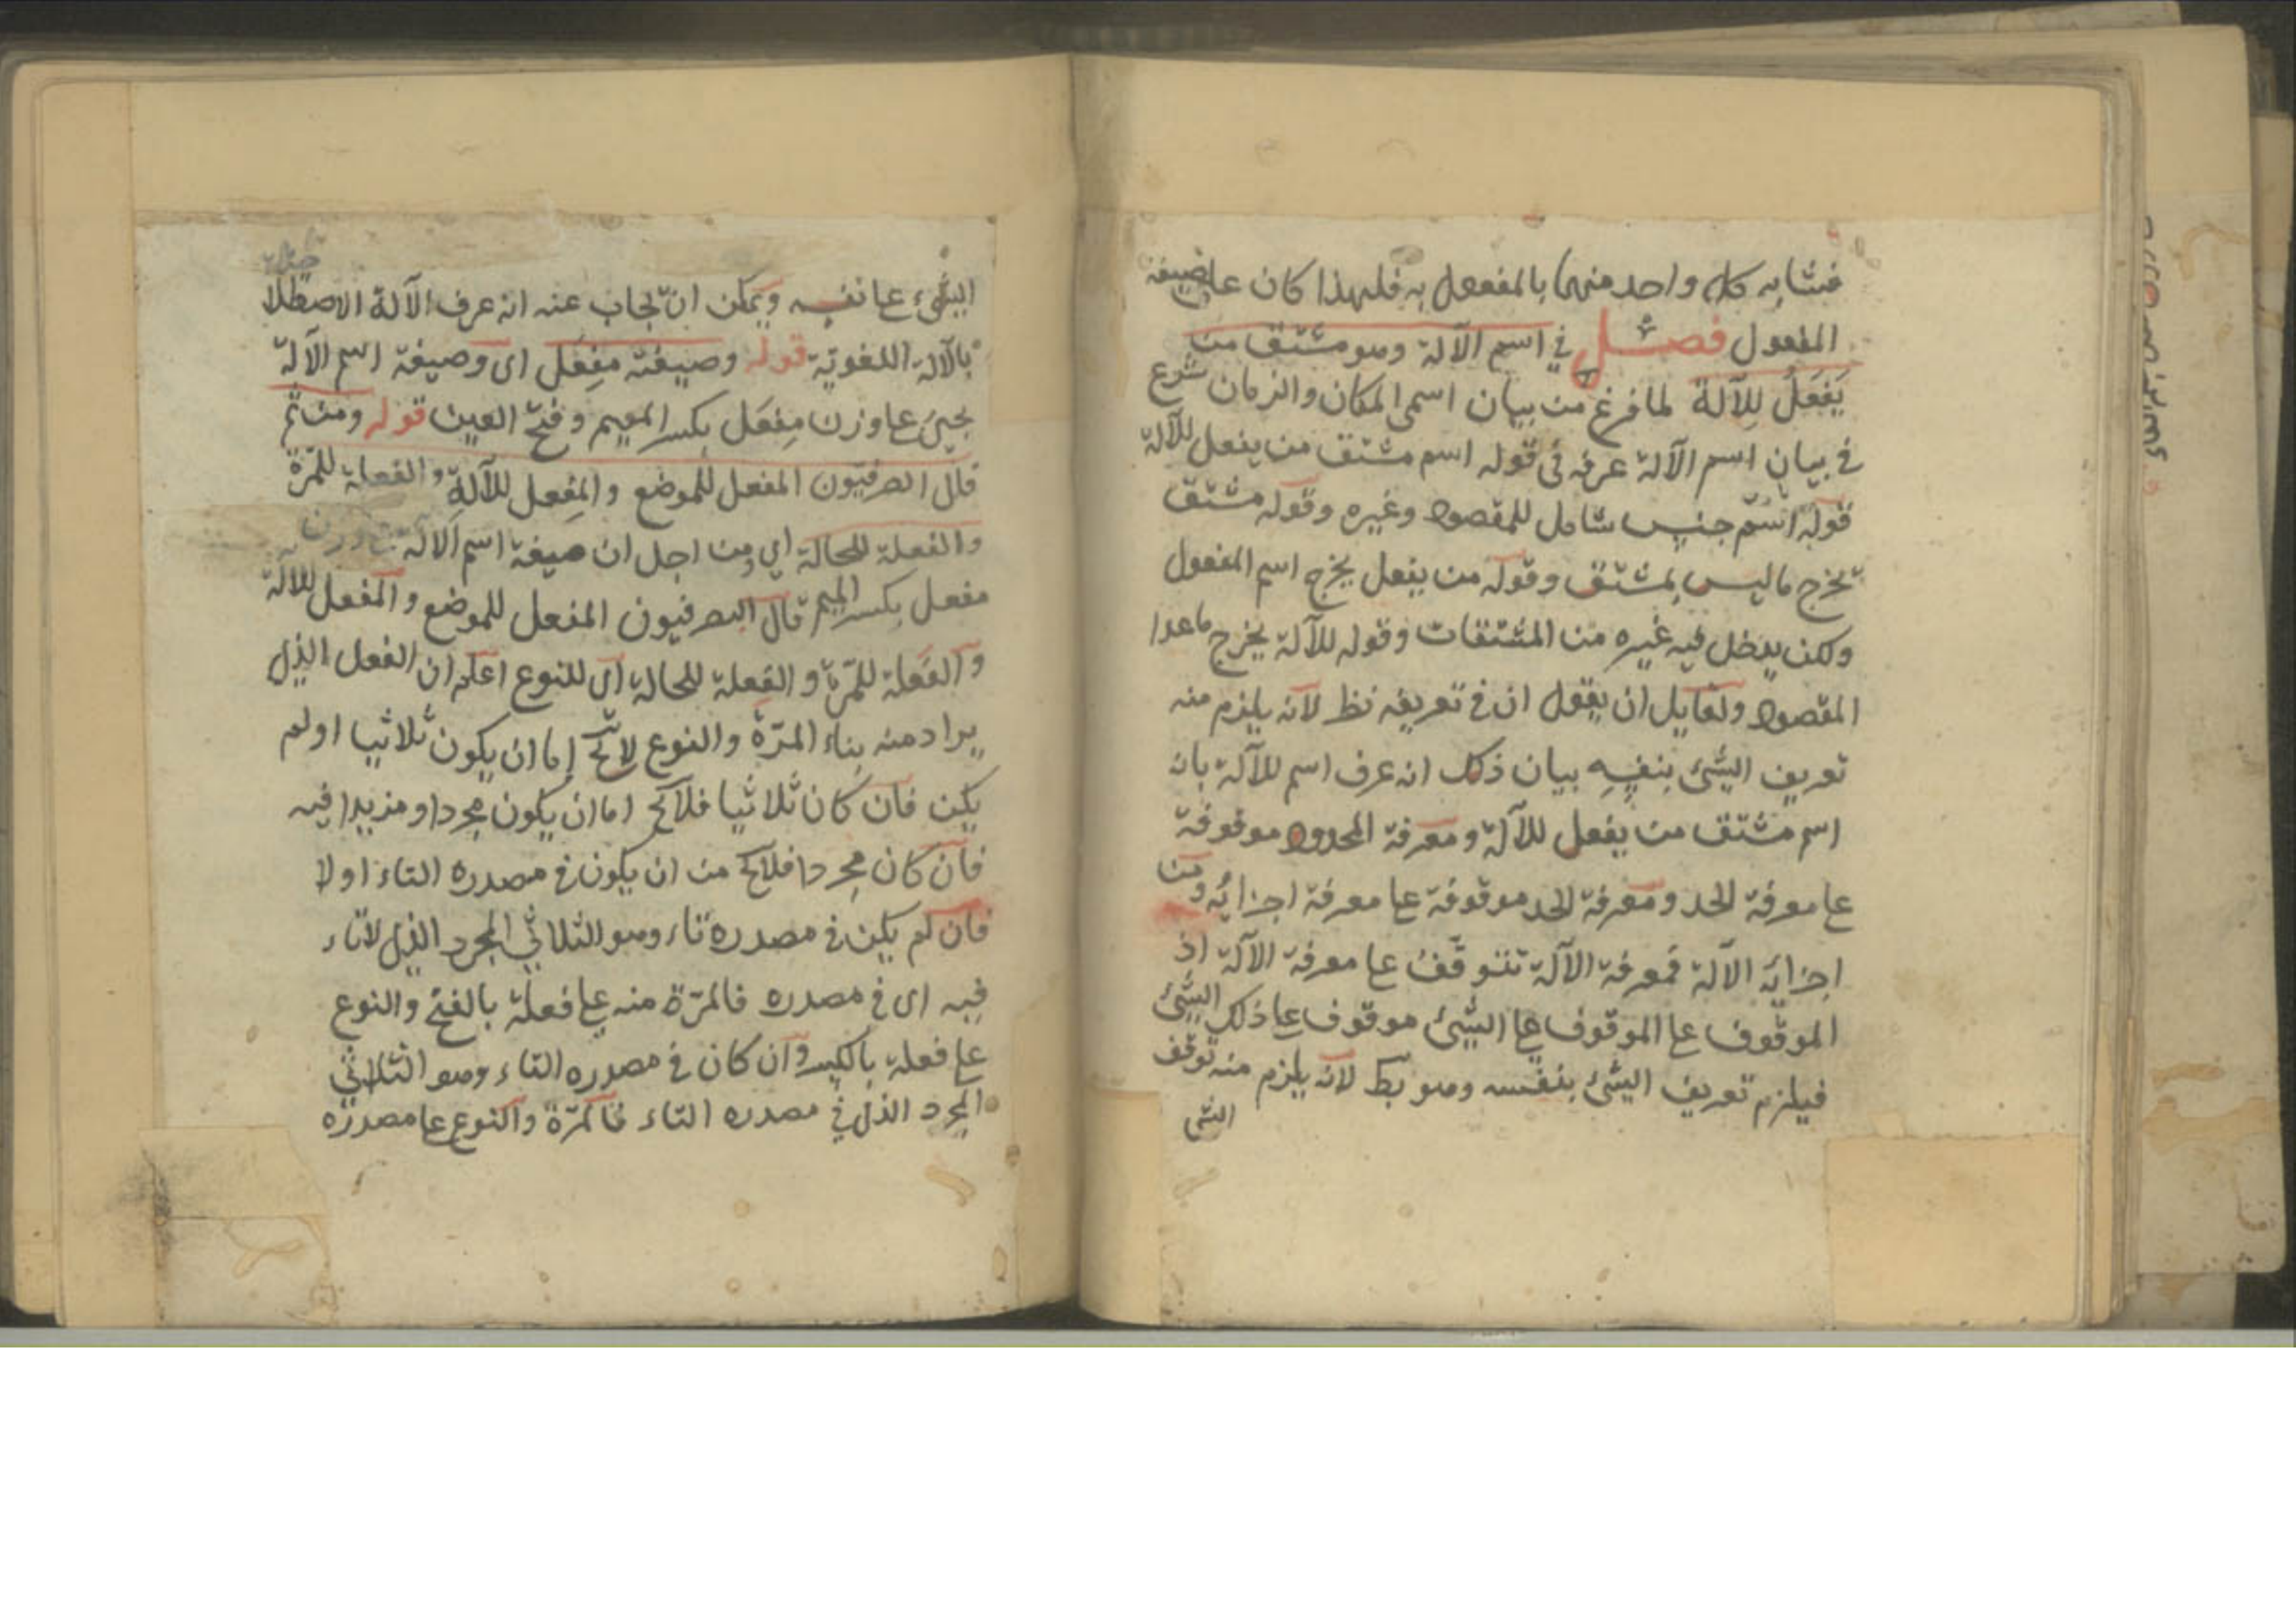 فشابه كل واحد منهما بالمفعول به فلهذا كان على صيغة
المفعول فصل في اسم الآلة وهو مشتق من
يَفْعَلُ لِلآلة لما فرغ من بيان اسمى المكان والزمان شرع
في بيان اسم الآلة عرفه في قوله اسم مشتق من يفعل للآلة
قوله اسم جنس شامل للمقصود وغيره وقوله مشتق
يخرج ما ليس بمشتق وقوله من يفعل يخرج اسم المفعول
ولكن يدخل فيه غيره من المشتقات وقوله للآلة يخرج ماعدا
المقصود ولقايل ان يقول ان في تعريفه نظ لانه يلزم منه
تعريف الشئ بنفسه بيان ذلك انه عرف اسم للآلة بانه
اسم مشتق من يفعل للآلة ومعرفة المحدود موقوفة
عا معرفة الحد ومعرفة الحد موقوفة عا معرفة اجزائه ومن
اجزائه الآلة فمعرفة الآلة تتوقف عا معرفة الآلة اذ
الموقوف عا الموقوف عا الشئ موقوف عا ذلك الشئ
فيلزم تعريف الشئ بنفسه وهو بط لانه يلزم منه توقف
الشئ
الشئ عا نفسه ويمكن ان يجاب عنه انه عرف الآلة الاصطلا
بالآلة اللغوية قوله وصيغته مِفعَل اى وصيغة اسم الآلة
يجئ عا وزن مِفعَل بكسر الميم وفتح العين قوله ومن ثم
قال الصرفيون المفعل للموضع والمِفعل للآلة والفعلة للمرّة
والفعلة للحالة اي ومن اجل ان صيغة اسم الآلة
مفعل بكسر الميم قال الصرفيون المفعل للموضع والمفعل للآلة
والفَعلة للمرّة والفعلة للحالة اى للنوع اعلم ان الفعل الذى
يراد منه بناء المرّة والنوع لا يخ إما ان يكون ثلاثيا او لم
يكن فان كان ثلاثيا فلا يخ اما ان يكون مجردا او مزيدا فيه
فان كان مجردا فلا يخ من ان يكون في مصدره التاء او لا
فان لم يكن في مصدره تاء وهو الثلاثي المجرد الذى لا تاء
فيه اى في مصدره فالمرّة منه عا فعلة بالفتح والنوع
عا فعلة بالكسر وان كان في مصدره التاء وهو الثلاثي
المجرد الذى في مصدره التاء فالمرّة والنوع عا مصدره